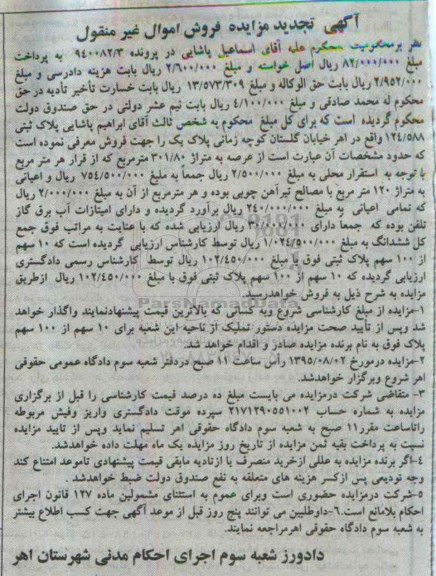 آگهی تجدید مزایده فروش اموال غیر منقول
نظر برمحکومیت محکوم علیه آقای اسماعیل پاشایی در پرونده ۹۴۰۰۸۲/۳ به پرداخت
۸۲/۰۰۰/۰۰۰ ریال اصل خواسته و مبلغ ۲/۶۰۰/۰۰۰ ریال بابت هزینه دادرسی و مبلغ
۲/۹۵۲/۰۰۰ ریال بابت حق الوکاله و مبلغ ۱۳/۵۷۳/۳۰۹ ریال بابت خسارت تأخیر تأدیه در حق
محکوم له محمد صادقی و مبلغ ۴/۱۰۰/۰۰۰ ریال بابت نیم عشر دولتی در حق صندوق دولت
محکوم گردیده است که برای کل مبلغ محکوم به شخص ثالث آقای ابراهیم پاشایی پلاک ثبتی
۱۲۴/۵۸۸ واقع در اهر خیابان گلستان کوچه زمانی پلاک یک را جهت فروش معرفی نموده است
که حدود مشخصات آن عبارت است از عرصه به متراژ ۳۰۱/۸۰ مترمربع که از قرار هر متر مربع
با توجه به استقرار محلی به مبلغ ۲/۵۰۰/۰۰۰ ریال جمعا به ملبغ ۷۵۴/۵۰۰/۰۰۰ ریال و اعیانی
به متراژ ۱۲۰ متر مربع با مصالح تیرآهن چوبی بوده و هر مترمربع از آن به مبلغ ۲/۰۰۰/۰۰۰ ریال
که تمامی اعیانی به مبلغ ۲۴۰/۰۰۰/۰۰۰ ریال برآورد گردیده و دارای امتیازات آب برق گاز
تلفن بوده که جمعا دارای ۳۰/۰۰۰/۰۰۰ ریال ارزیابی شده که با عنایت به مراتب فوق جمع
کل ششدانگ به مبلغ ۱/۰۲۴/۵۰۰/۰۰۰ ریال توسط کارشناس ارزیابی گردیده است که ۱۰ سهم
از ۱۰۰ سهم پلاک ثبتی فوق با مبلغ ۱۰۲/۴۵۰/۰۰۰ ریال توسط کارشناس رسمی دادگستری
ارزیابی گردیده که ۱۰ سهم از ۱۰۰ سهم پلاک ثبتی فوق با مبلغ ۱۰۲/۴۵۰/۰۰۰ ریال ازطریق
مزایده به شرح ذیل به فروش خواهدرسید.
۱-مزایده از مبلغ کارشناسی شروع وبه کسانی که بالاترین قیمت پیشنهادنمایند واگذار خواهد
شد وپس از تأیید صحت مزایده دستور تملیک از ناحیه این شعبه برای ۱۰ سهم از ۱۰۰ سهم
پلاک فوق به نام برنده مزایده صادر و اقدام خواهد شد.
۲-مزایده درمورخ ۱۳۹۵/۰۸/۰۲ رأس ساعت ۱۱ صبح دردفتر شعبه سوم دادگاه عمومی حقوقی
اهر شروع وبرگزار خواهدشد.
۳- متقاضی شرکت درمزایده می بایست مبلغ ده درصد قیمت کارشناسی را قبل از برگزاری
مزایده به شماره حساب ۲۱۷۱۲۹۰۵۵۱۰۰۲ سپرده موقت دادگستری واریز وفیش مربوطه
راتاساعت مقرر۱۱ صبح به شعبه سوم دادگاه حقوقی اهر تسلیم نماید وپس از تایید مزایده
نسبت به پرداخت بقیه ثمن مزایده از تاریخ روز مزایده یک ماه مهلت داده خواهدشد.
۴-اگر برنده مزایده به عللی ازخرید منصرف یا ازتادیه مابقی قیمت پیشنهادی تاموعد امتناع کند
وجه تودیعی پس ازکسر هزینه های متعلقه به نفع صندوق دولت ضبط خواهدشد.
۵-شرکت درمزایده حضوری است وبرای عموم به استثنای مشمولین ماده ۱۲۷ قانون اجرای
احکام بلامانع است.۶-داوطلبین می توانند پنج روز قبل از موعد آگهی جهت کسب اطلاع بیشتر
به شعبه سوم دادگاه حقوقی اهرمراجعه نمایند.
دادورز شعبه سوم اجرای احکام مدنی شهرستان اهر